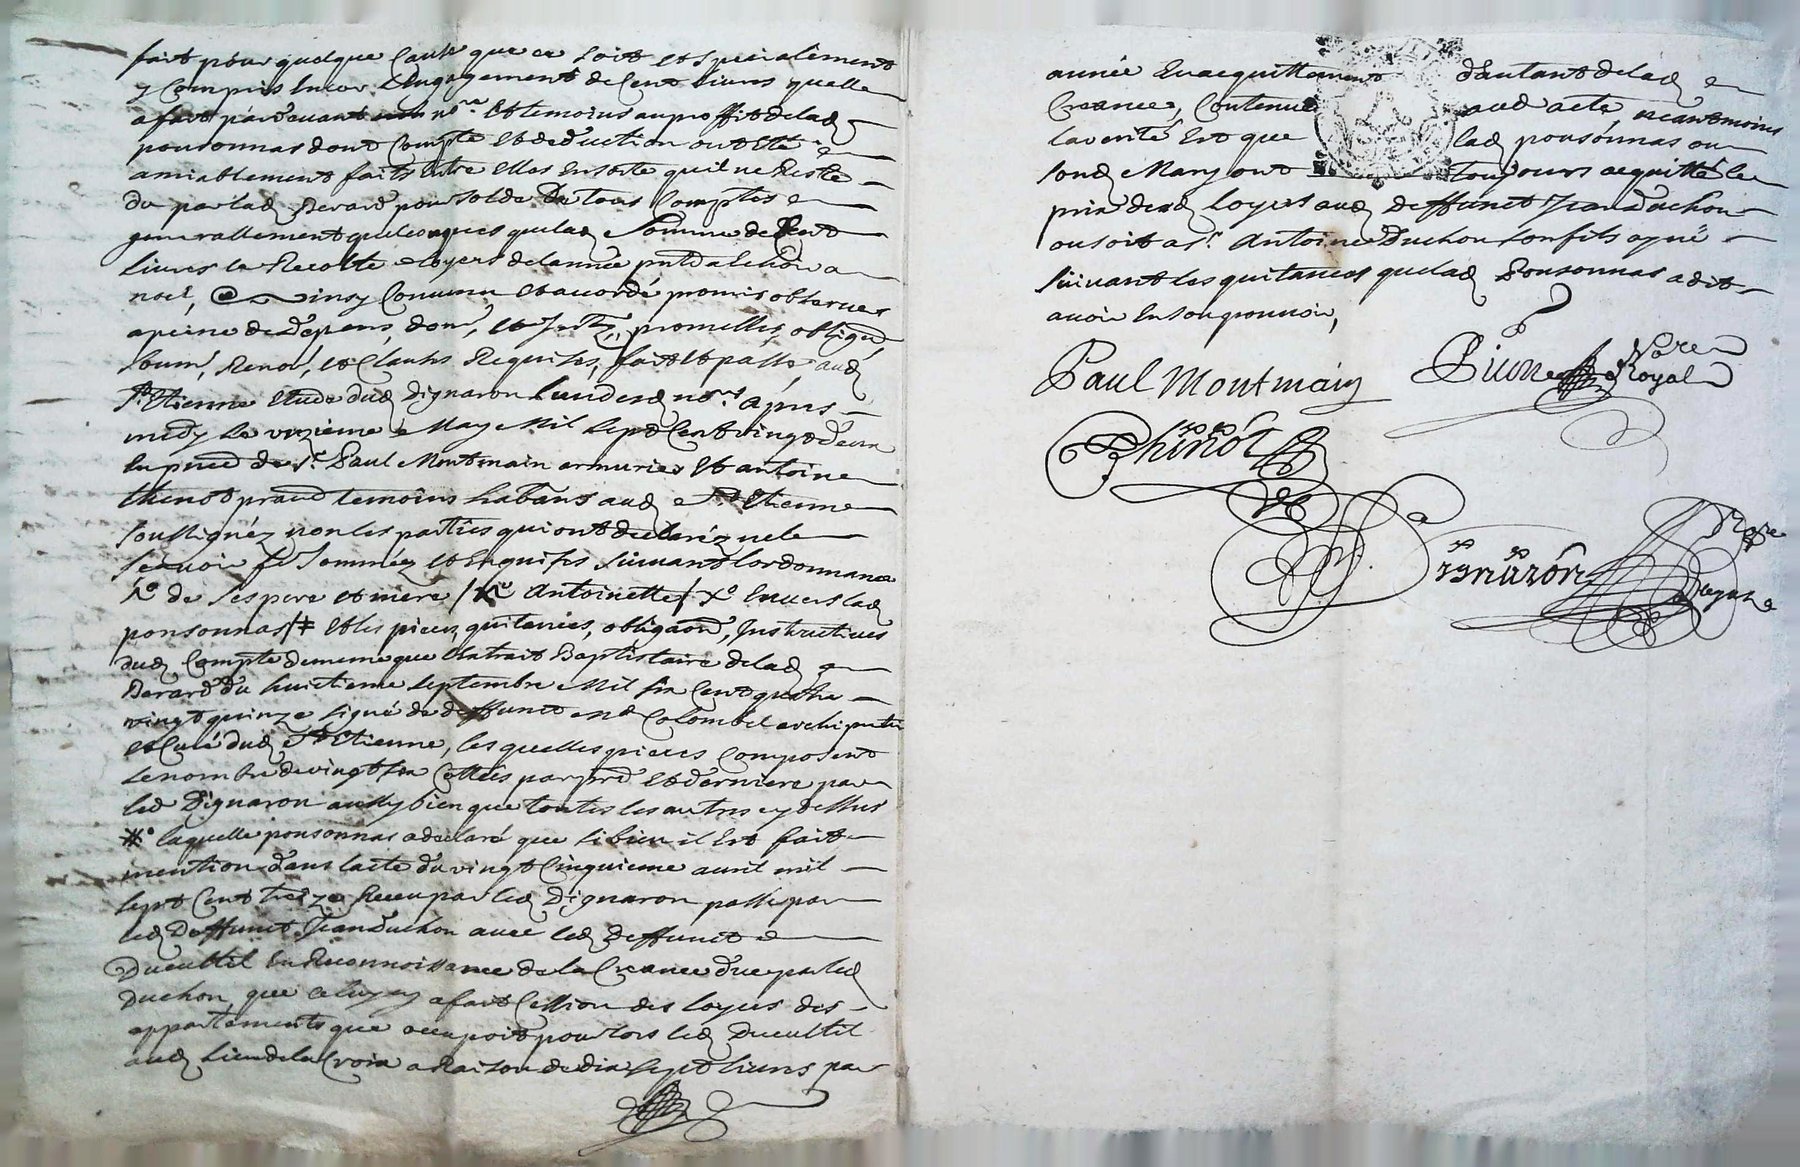 fait pour quelque cause que ce soit et specialement
y compris encor l'engagement de cent livres quelle
a fait pardevant nore et temoins au proffit de lad
ponsonnas dont compte et deduction ont eté
amiablement faits entre elles en sorte quil ne reste
du par lad Berard pour solde de tous comptes
generallement quelconques que la somme de cent
livres la recolte loyers de lannée pnte a echoir a
noel, insy convenu et accordé promis observer
a peine de depens, dom, et promesses, obligaon
soum, renon, et clauses requises, fait et passé aud
St Etienne etude dud Dignaron lun desd nores apres
midy le unzieme May Mil sept cent vingt deux
en pnce de sr Paul Montmain armurier et antoine
thinot temoins habtans aud St Etienne
soussignéz non les parties qui ont declaréz ne le
scavoir fe sommées et enquises suivant lordonnance
de ses pere et mere / Antoinette / Xo envers lad
ponsonnas / et les pieces, quitances, obligaons, instructives
dud compte de meme que lextrait Baptistaire de lad
Berard du huitieme septembre Mil six cent quatre
vingt quinze signé de deffunct Colombet archipretre
et curé dud St Etienne, les quelles pieces composent
le nombre de vingt six cottées par pre et derniere par
led Dignaron aussy bien que toutes les autres cy dessus
#o laquelle ponsonnas a declaré que si bien il est fait
mention dans lacte du vingt cinquieme avril mil
sept cent treize receu par led Dignaron passé par
led Deffunct Jean Duchon avec led deffunct
Ducultil en reconnoissance de la creance due par led
Duchon, que celuy cy a fait cession des loyers des
appartements que occupoit pour lors led Ducultil
aud lieu de la Croix a raison de dix sept livres par
année en acquittement dautant de lad
creance, contenue aud acte neantmoins
la verité est que lad ponsonnas ou
sond Mary ont toujours acquitté le
prix desd loyers aud deffunct Jean Duchon
ou soit a sr Antoine Duchon son fils ayné
suivant les quitances que lad Ponsonnas a dit
avoir en son pouvoir,
Paul Montmain
Pion Nore Royal
Thinot
Dignaron Nore Royal